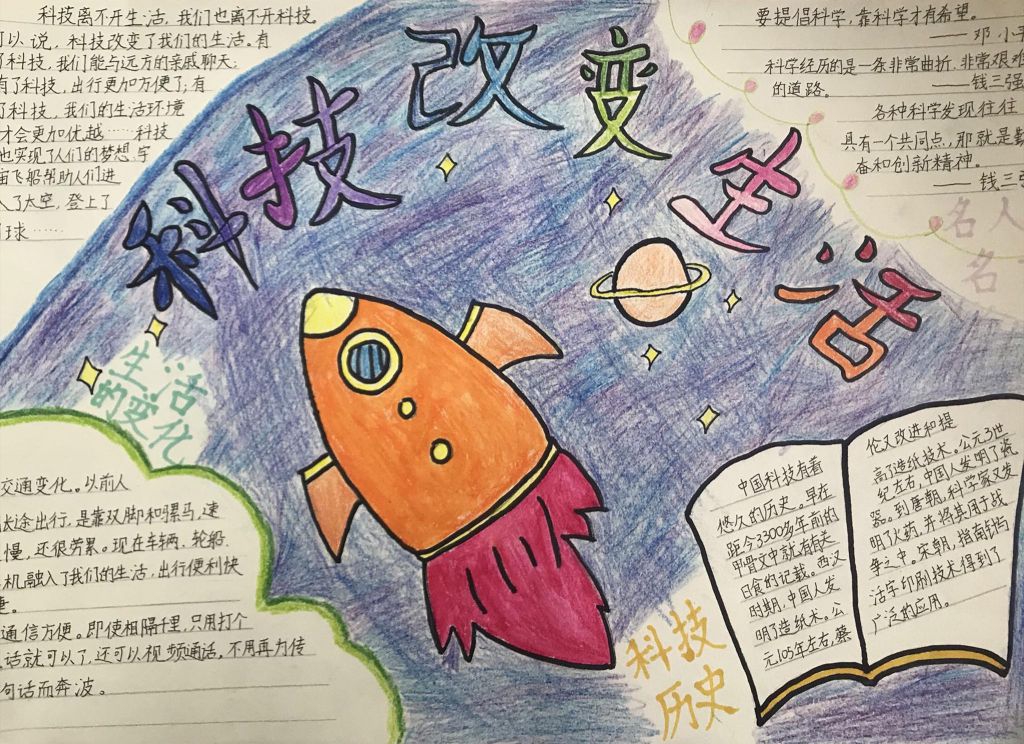 科技离不开生活，我们也离不开科技。
可以说，科技改变了我们的生活。有
了科技，我们能与远方的亲戚聊天；
有了科技，出行更加方便了；有
了科技，我们的生活环境
才会更加优越……科技
也实现了人们的梦想，宇
宙飞船帮助人们进
入了太空，登上了
球……
科技改变生活
要提倡科学，靠科学才有希望。
——邓小平
科学经历的是一条非常曲折、非常艰难
的道路。——钱三强
各种科学发现往往
具有一个共同点，那就是勤
奋和创新精神。
——钱三强
名人
名
生活
的变化
交通变化。以前人
长途出行，是靠双脚和骡马，速
慢，还很劳累。现在车辆、轮船、
机融入了我们的生活，出行便利快
捷。
通信方便。即使相隔千里，只用打个
话就可以了，还可以视频通话，不用再为传
句话而奔波。
科技
历史
中国科技有着
悠久的历史。早在
距今3300多年前的
甲骨文中就有有关
日食的记载。西汉
时期，中国人发
明了造纸术。公
元105年左右，蔡
伦又改进和提
高了造纸技术。公元3世
纪左右，中国人发明了瓷
器。到唐朝，科学家又发
明了火药，并将其用于战
争之中。宋朝，指南针与
活字印刷技术得到了
广泛的应用。